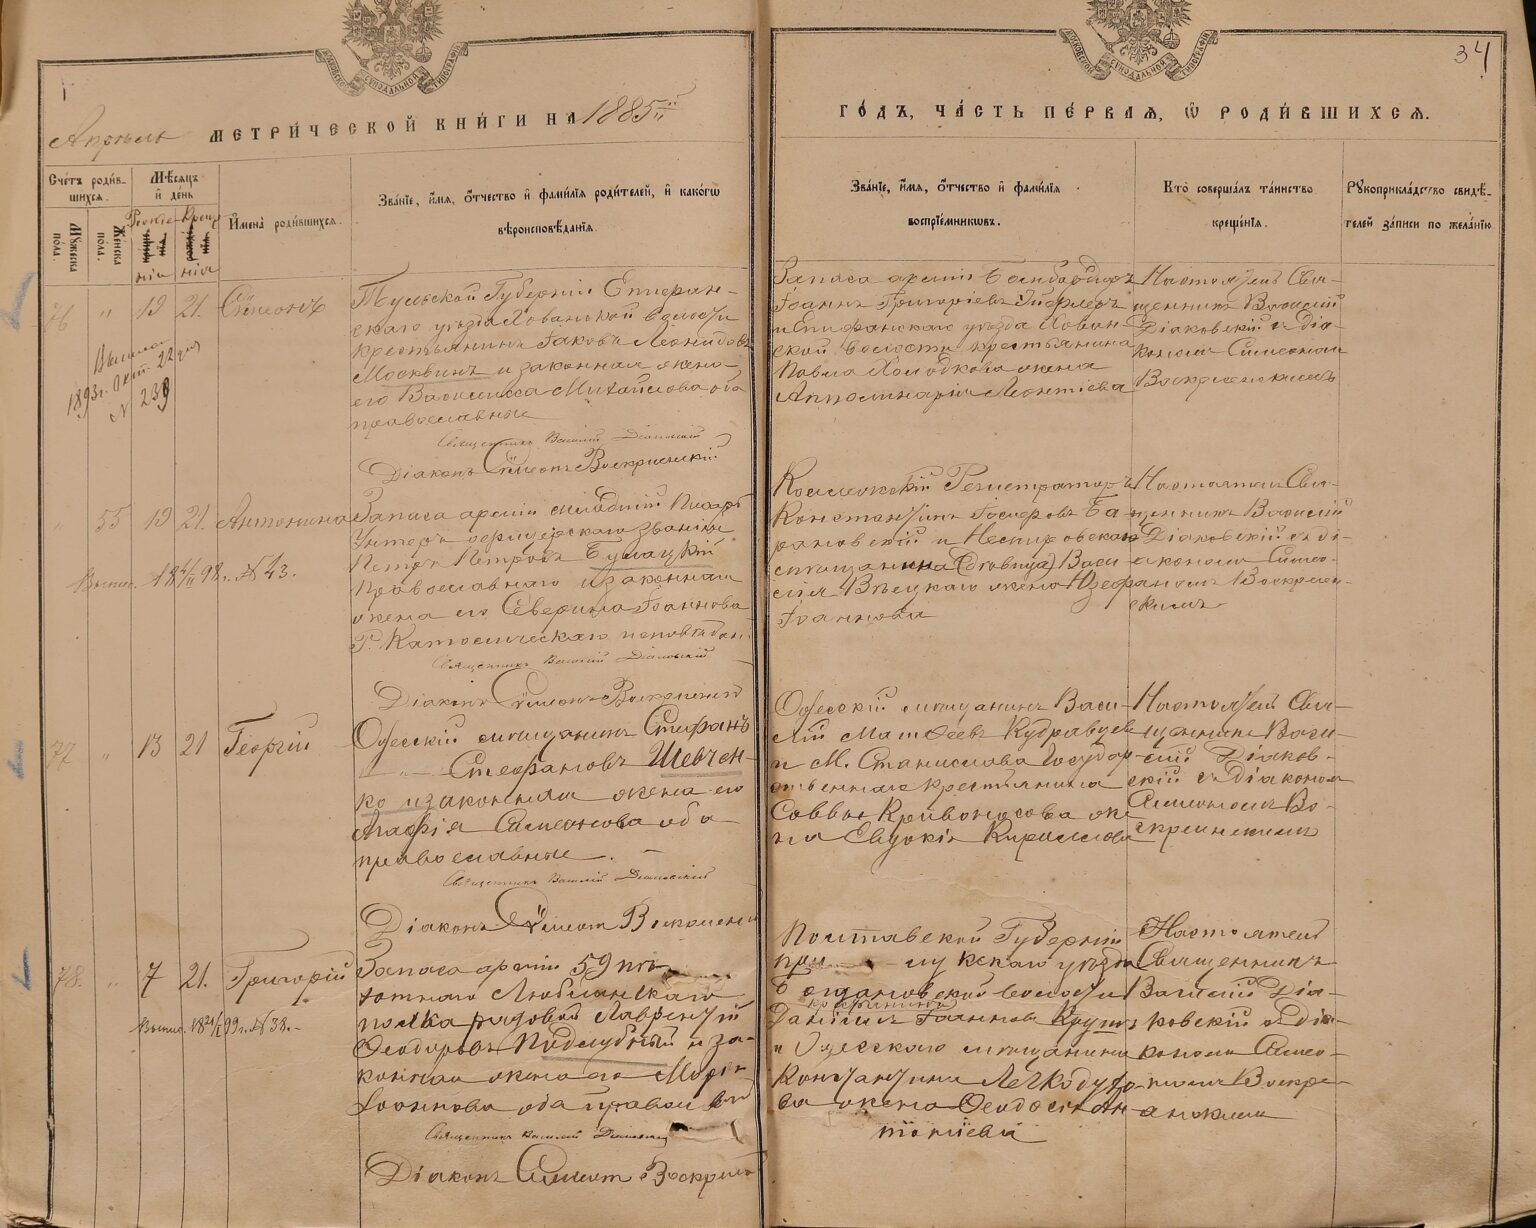 МОСКОВСКОЙ СѴНОДАЛЬНОЙ ТИПОГРАФІИ
МОСКОВСКОЙ СѴНОДАЛЬНОЙ ТИПОГРАФІИ
34
Апрѣль
МЕТРИ́ЧЕСКОЙ КНИ́ГИ НА 1885й
ГО́ДЪ, ЧА́СТЬ ПЕ́РВАѦ, Ѡ҆ РОДИ́ВШИХСѦ.
Сче́тъ роди́в-
шихся.
Мꙋжеска по́ла.
Же́нска по́ла.
Мѣ́сяцъ
и҆ де́нь
Рожде
нія
Крещ
нія
И҆мена̀ роди́вшихся.
Зва́нїе, и҆́мя, ѻ҆́тчество и҆ фами́лїя роди́телей, и҆ како́гѡ
вѣроисповѣ́данїя.
Зва́нїе, и҆́мя, ѻ҆́тчество и҆ фами́лїя
воспрїе́мникѡвъ.
Кто̀ соверша́лъ та́инство
креще́нїя.
Рꙋкоприкла́дство свидѣ́-
телей за́писи по жела́нїю.
76 " 19 21. Сѵмеонъ
Тульской Губерніи Епифан-
скаго уѣзда Хованской волости
крестьянинъ Іаковъ Леонидовъ
Москвинъ и законная жена
его Василиса Михайлова оба
православные
Священникъ Василій Діаковскій
Діаконъ Сѵмеонъ Воскресенскій
Выписъ
1893г. Окт. 22 дня
№ 239
Запаса арміи Бомбардиръ
Іоаннъ Григоріевъ
и Епифанскаго уѣзда Хован-
ской волости крестьянина
Павла Холодкова жена
Апполинарія Леонтіева
Настоятель Свя-
щенникъ Василій
Діаковскій и діа-
кономъ Симеономъ
Воскресенскимъ
" 55 19 21. Антонина
Запаса арміи младшій Писарь
Унтеръ офицерскаго званія
Петръ Петровъ Булацкій
Православнаго и законная
жена его Северина Іоаннова
Р. Католическаго исповѣдан.
Священникъ Василій Діаковскій
Діаконъ Сѵмеонъ Воскресенскій
Выпис. 18 4/II 98 г. № 43.
Коллежскій Регистраторъ
Константинъ Ба-
рановскій и
(вдовица) Васи-
лія жена
Іоаннова
Настоятель Свя-
щенникъ Василій
Діаковскій съ ді-
акономъ Симео-
номъ Воскресен-
скимъ
77 " 13 21 Георгій
Одесскій мѣщанинъ Стефанъ
Стефановъ Шевчен-
ко и законная жена его
Агафія Симеонова оба
православные.
Священникъ Василій Діаковскій
Діаконъ Сѵмеонъ Воскресенскій
Одесскій мѣщанинъ Васи-
лій Матѳеевъ Кудрявцевъ
и М. Станислава Государ-
ственнаго крестьянина
Саввы Кривоносова же-
на Евдокія Кириллова
Настоятель Свя-
щенникъ Васи-
лій Діаков-
скій съ діакономъ
Симеономъ Во-
скресенскимъ
78. " 7 21. Григорій
Запаса арміи 59 пѣ-
хотнаго Люблинскаго
полка рядовой Лаврентій
Ѳеодоровъ Поддубный и за-
конная жена его Марія
Іоаннова оба правосл
Священникъ Василій Діаковскій
Діаконъ Симеонъ Воскресен
Выпис. 18 21/I 99 г. № 38.-
Полтавской Губерніи
лукскаго уѣзда
Богдановской волости
крестьянинъ
Даніилъ Іоанновъ Крутъ
и Одесскаго мѣщанина
Константина Легкодухо-
ва жена Ѳеодосія Ан-
тоніева
Настоятель
Священникъ
Василій Діа-
ковскій съ діа-
кономъ Симео-
номъ Воскре-
сенскимъ